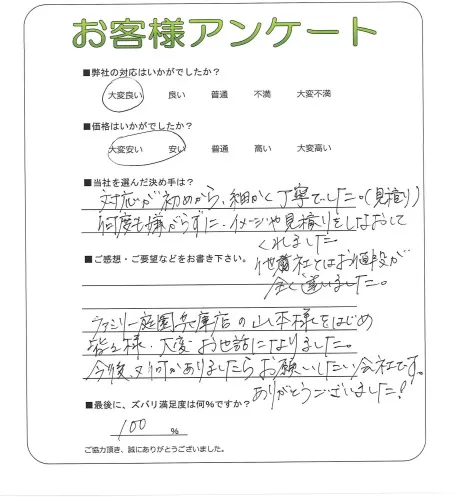 お客様アンケート
■弊社の対応はいかがでしたか？
大変良い 良い 普通 不満 大変不満
■価格はいかがでしたか？
大変安い 安い 普通 高い 大変高い
■当社を選んだ決め手は？
対応が初めから、細かく丁寧でした。(見積り)
何度も嫌がらずに、イメージや見積りをしなおして
くれました
■ご感想・ご要望などをお書き下さい。
他社とはお値段が
全く違いました。
ファミリー庭園兵庫店の山本様をはじめ
皆々様、大変お世話になりました。
今後、又何かありましたらお願いしたい会社です。
ありがとうございました！
■最後に、ズバリ満足度は何%ですか？
100 %
ご協力頂き、誠にありがとうございました。